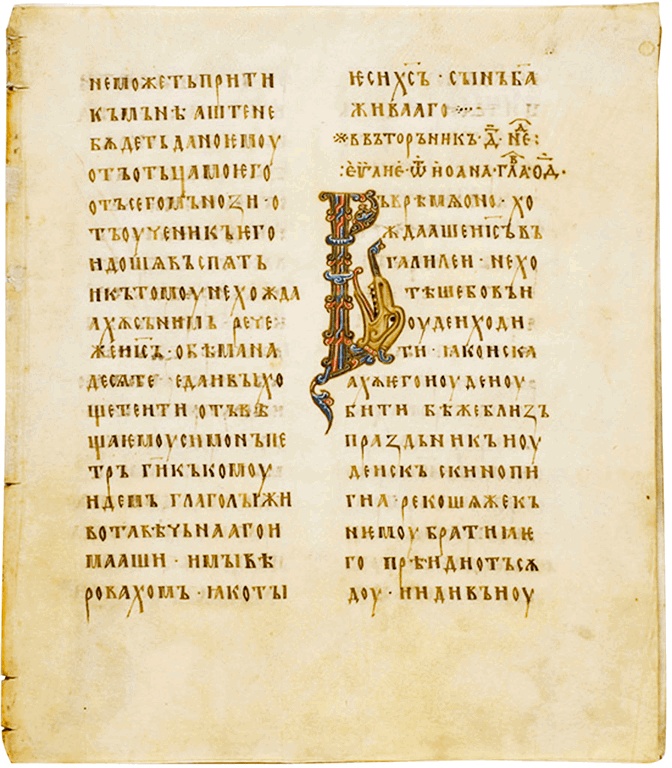 не можетъ прити
къ мънѣ аште не
бѫдеть дано ѥмоу
отъ отьца моѥго
отъ сего мънози · о
тъ оученикъ ѥго
идошѧ въспѧть
и къ томоу не хожда
ахѫ съ нимь · рече
же иї҃съ · обѣма на
десѧте · еда и вы хо
щете ити · отъвѣ
ща ѥмоу симонъ пе
тръ · ги҃ къ комоу
идемъ · глаголы жи
вота вѣчьнааго и
мааши · и мы вѣ
ровахомъ · ꙗко ты
ѥси х҃съ · сынъ ба҃
живааго
въ въторьник · д҃ · не҃д :
: еу҃глие · ѿ иоана · гла҃в · од҃ ·
Въ врѣмѧ оно · хо
ждааше ис҃ъ въ
галилеи · не хо
тѣше бо въ и
оудеи ходи
ти · ꙗко иска
ахѫ ѥго иоудеи оу
бити · бѣ же близъ
праздьникъ иоу
деискъ скинопи
гиꙗ · рекошѧ же къ
нѥмоу братиꙗ ѥ
го · прѣиди отъсѫ
доу · и иди въ иоу